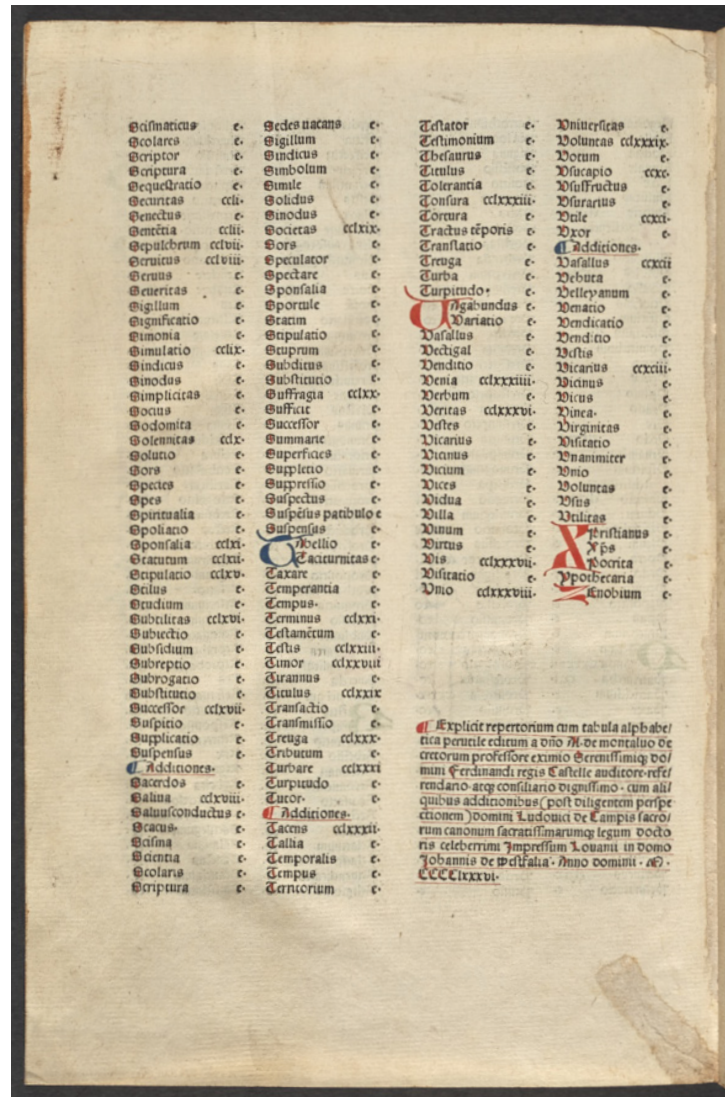 Scismaticus e.
Scolares e.
Scriptor e.
Scriptura e.
Sequestratio e.
Securitas ccli.
Senectus e.
Sentẽtia cclii.
Sepulchrum cclvii.
Seruitus cclviii.
Seruus e.
Seueritas e.
Sigillum e.
Significatio e.
Simonia e.
Simulatio cclix.
Sindicus e.
Sinodus e.
Simplicitas e.
Socius e.
Sodomita e.
Solennitas cclx.
Solutio e.
Sors e.
Species e.
Spes e.
Spiritualia e.
Spoliatio e.
Sponsalia cclxi.
Statutum cclxii.
Stipulatio cclxv.
Stilus e.
Studium e.
Subtilitas cclxvi.
Subiectio e.
Subsidium e.
Subreptio e.
Subrogatio e.
Substitutio e.
Successor cclxvii.
Suspitio e.
Supplicatio e.
Suspensus e.
¶ Additiones.
Sacerdos e.
Salina cclxviii.
Saluusconductus e.
Scacus. e.
Scisma e.
Scientia e.
Scolaris e.
Scriptura e.
Sedes uacans e.
Sigillum e.
Sindicus e.
Simbolum e.
Simile e.
Solidus e.
Sinodus e.
Societas cclxix.
Sors e.
Speculator e.
Spectare e.
Sponsalia e.
Sportule e.
Statim e.
Stipulatio e.
Stuprum e.
Subditus e.
Substitutio e.
Suffragia cclxx.
Sufficit e.
Successor e.
Summarie e.
Superficies e.
Suppletio e.
Suppressio e.
Suspectus e.
Suspẽsus patibulo e
Suspensus e.
TAbellio e.
Taciturnitas e.
Taxare e.
Temperantia e.
Tempus. e.
Terminus cclxxi.
Testamẽtum e.
Testis cclxxiii.
Timor cclxxviii
Tirannus e.
Titulus cclxxix
Transactio e.
Transmissio e.
Treuga cclxxx.
Tributum e.
Turbare cclxxxi
Turpitudo e.
Tutor. e.
¶ Additiones.
Tacens cclxxxii.
Tallia e.
Temporalis e.
Tempus e.
Territorium e.
Testator e.
Testimonium e.
Thesaurus e.
Titulus e.
Tolerantia e.
Tonsura cclxxxiii.
Tortura e.
Tractus tẽporis e.
Translatio e.
Treuga e.
Turba e.
Turpitudo. e.
VAgabundus e.
Variatio e.
Vasallus e.
Vectigal e.
Venditio e.
Venia cclxxxiiii.
Verbum e.
Veritas cclxxxvi.
Vestes e.
Vicarius e.
Vicinus e.
Vicium e.
Vices e.
Vidua e.
Villa e.
Vinum e.
Virtus e.
Vis cclxxxvii.
Visitatio e.
Vnio cclxxxviii.
Vniuersitas e.
Voluntas cclxxxix.
Votum e.
Vsucapio ccxc.
Vsusfructus e.
Vsurarius e.
Vtile ccxci.
Vxor e.
¶ Additiones.
Vasallus ccxcii
Vehuta e.
Velleyanum e.
Venatio e.
Vendicatio e.
Venditio e.
Vestis e.
Vicarius ccxciii.
Vicinus e.
Vicus e.
Vinea. e.
Virginitas e.
Visitatio e.
Vnanimiter e.
Vnio e.
Voluntas e.
Vsus e.
Vtilitas e.
XPristianus e.
Xp̃s e.
Ypocrita e.
Ypothecaria e.
ZEnobium e.
¶ Explicit repertorium cum tabula alphabe/
tica perutile editum a dño M. de montaluo de
cretorum professore eximio Serenissimiq; do/
mini Ferdinandi regis Castelle auditore refe/
rendario atq; consiliario dignissimo. cum ali/
quibus additionibus (post diligentem perspe
ctionem) domini Ludouici de Campis sacro/
rum canonum sacratissimarumq; legum docto
ris celeberrimi Impressum Louanii in domo
Johannis de westfalia. Anno dominii. M.
CCCClxxxvi.